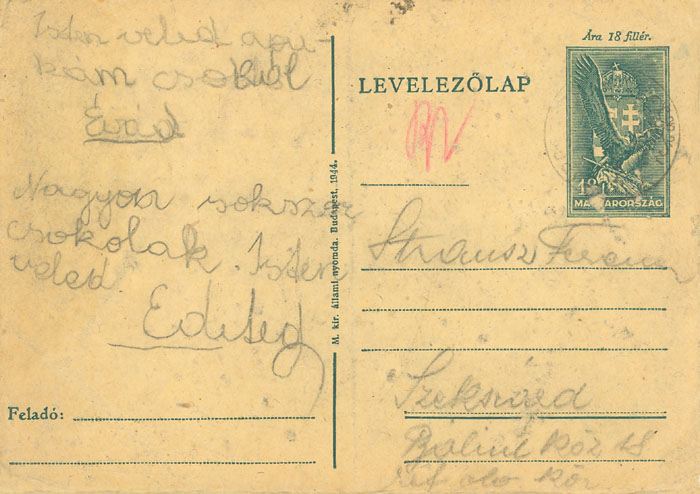 Isten veled apu-
kám csokol
Évád
Nagyon sokszor
csokolak. Isten
veled
Edited
Feladó:
M. kir. állami nyomda. Budapest. 1944.
Ára 18 fillér.
LEVELEZŐLAP
18
MAGYARORSZÁG
Strausz Ferenc
Szekszárd
Bálint köz 18